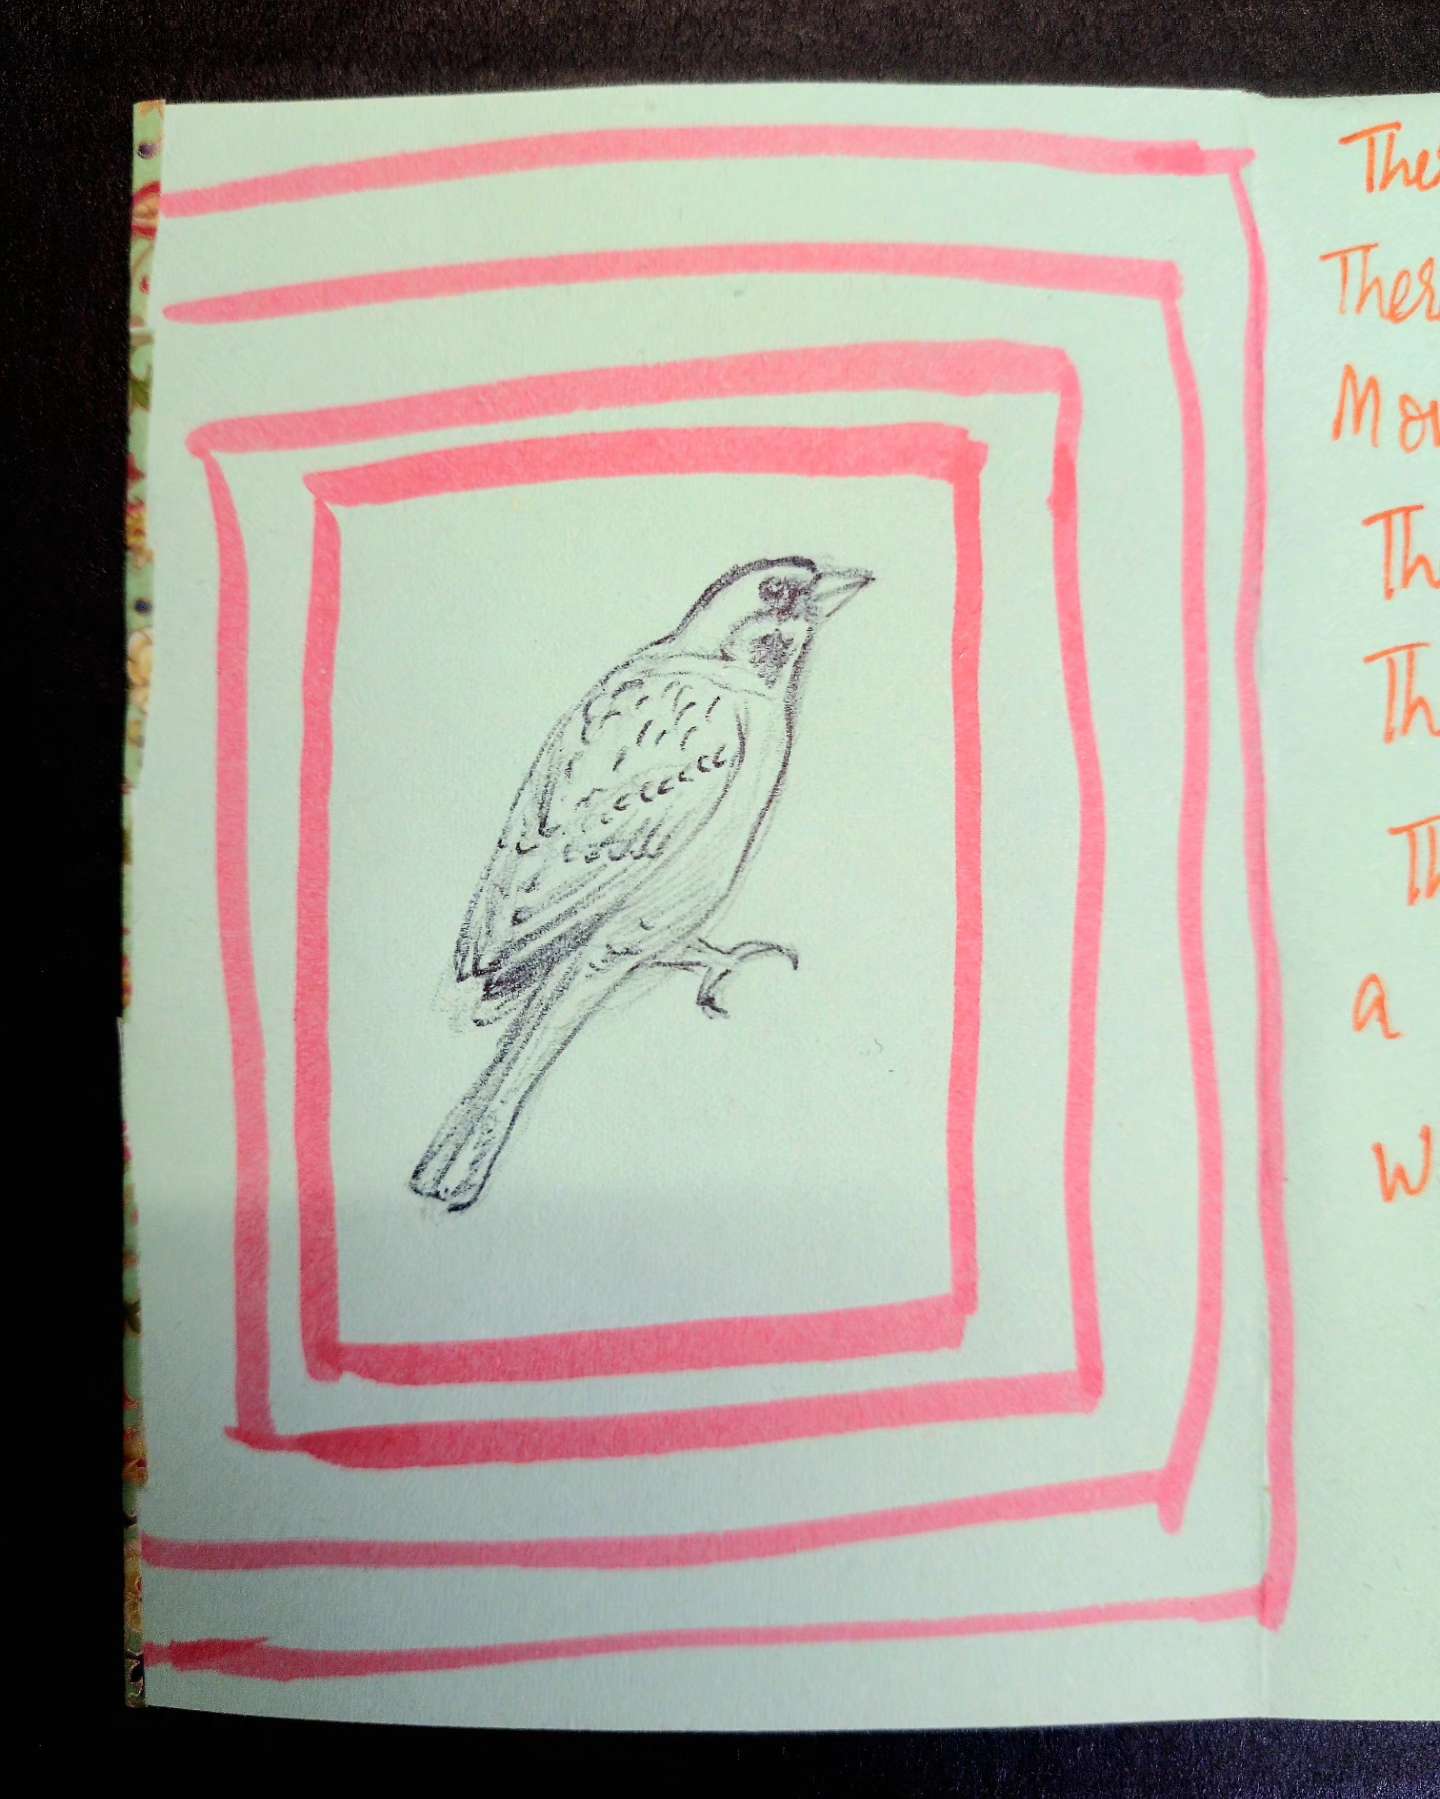 Ther
Ther
Mou
Th
Th
Th
a
W